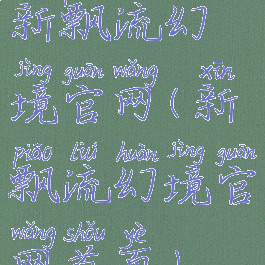 新飘流幻
jìng guān wǎng xīn
境官网(新
piāo liú huàn jìng guān
飘流幻境官
wǎng shǒu yè
网首页)